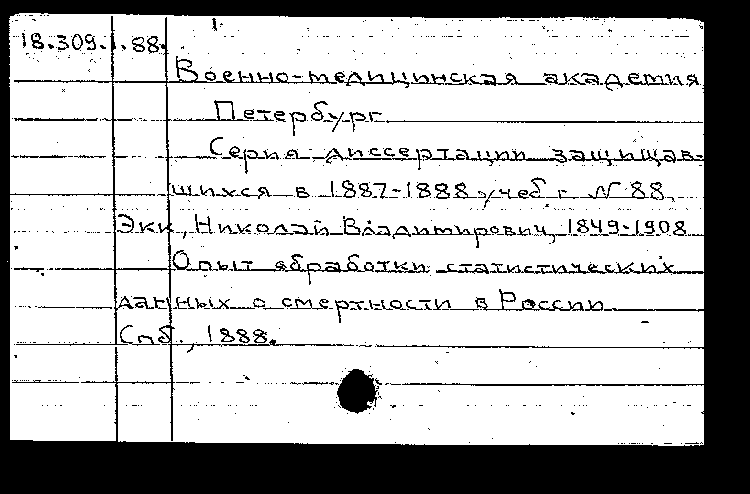 18.309.1.88.
Военно-медицинская академия
Петербург.
Серия диссертации защищав-
шихся в 1887-1888 учеб г. N 88.
Экк, Николай Владимирович, 1849-1908
Опыт обработки статистических
данных о смертности в России.
Спб., 1888.